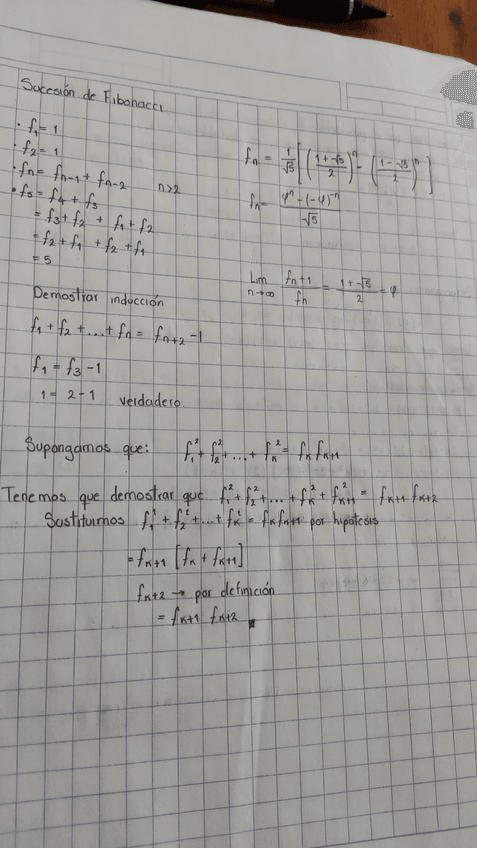 Sucesión de Fibonacci
• f₁ = 1
• f₂ = 1
• fn = fn-1 + fn-2 n>2
• f5 = f4 + f3
= f3 + f2 + f1 + f2
= f2 + f1 + f2 + f1
= 5
fn = 1/√5 [ ((1+√5)/2)ⁿ - ((1-√5)/2)ⁿ ]
fn = (φⁿ - (-φ)⁻ⁿ)/√5
Lim n→∞ fn+1/fn = (1+√5)/2 = φ
Demostrar inducción
f₁ + f₂ + ... + fn = fn+2 - 1
f₁ = f₃ - 1
1 = 2 - 1 verdadero
Supongamos que: f₁² + f₂² + ... + fk² = fk fk+1
Tenemos que demostrar que f₁² + f₂² + ... + fk² + f²k+1 = fk+1 fk+2
Sustituimos f₁² + f₂² + ... + fk² = fk fk+1 por hipótesis
= fk+1 [fk + fk+1]
fk+2 → por definición
= fk+1 fk+2 ∎